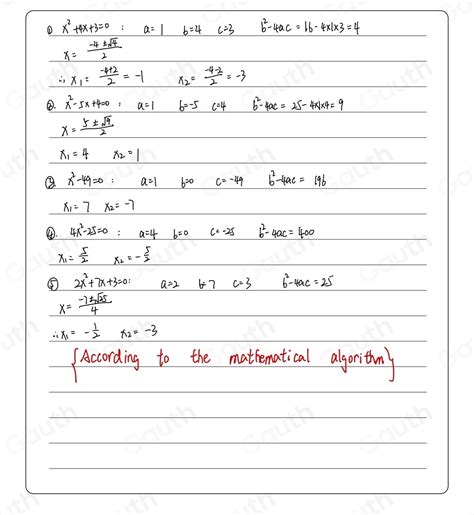 ① x²+4x+3=0 : a=1 b=4 c=3 b²-4ac=16-4×1×3=4
x= (-4±√4)/2
∴ x₁= (-4+2)/2 = -1 x₂= (-4-2)/2 = -3
② x²-5x+4=0 : a=1 b=-5 c=4 b²-4ac = 25-4×1×4=9
x= (5±√9)/2
x₁=4 x₂=1
③ x²-49=0 : a=1 b=0 c=-49 b²-4ac = 196
x₁=7 x₂=-7
④. 4x²-25=0 : a=4 b=0 c=-25 b²-4ac=400
x₁= 5/2 x₂= -5/2
⑤ 2x²+7x+3=0: a=2 b=7 c=3 b²-4ac=25
x= (-7±√25)/4
∴x₁ = -1/2 x₂=-3
{According to the mathematical algorithm}